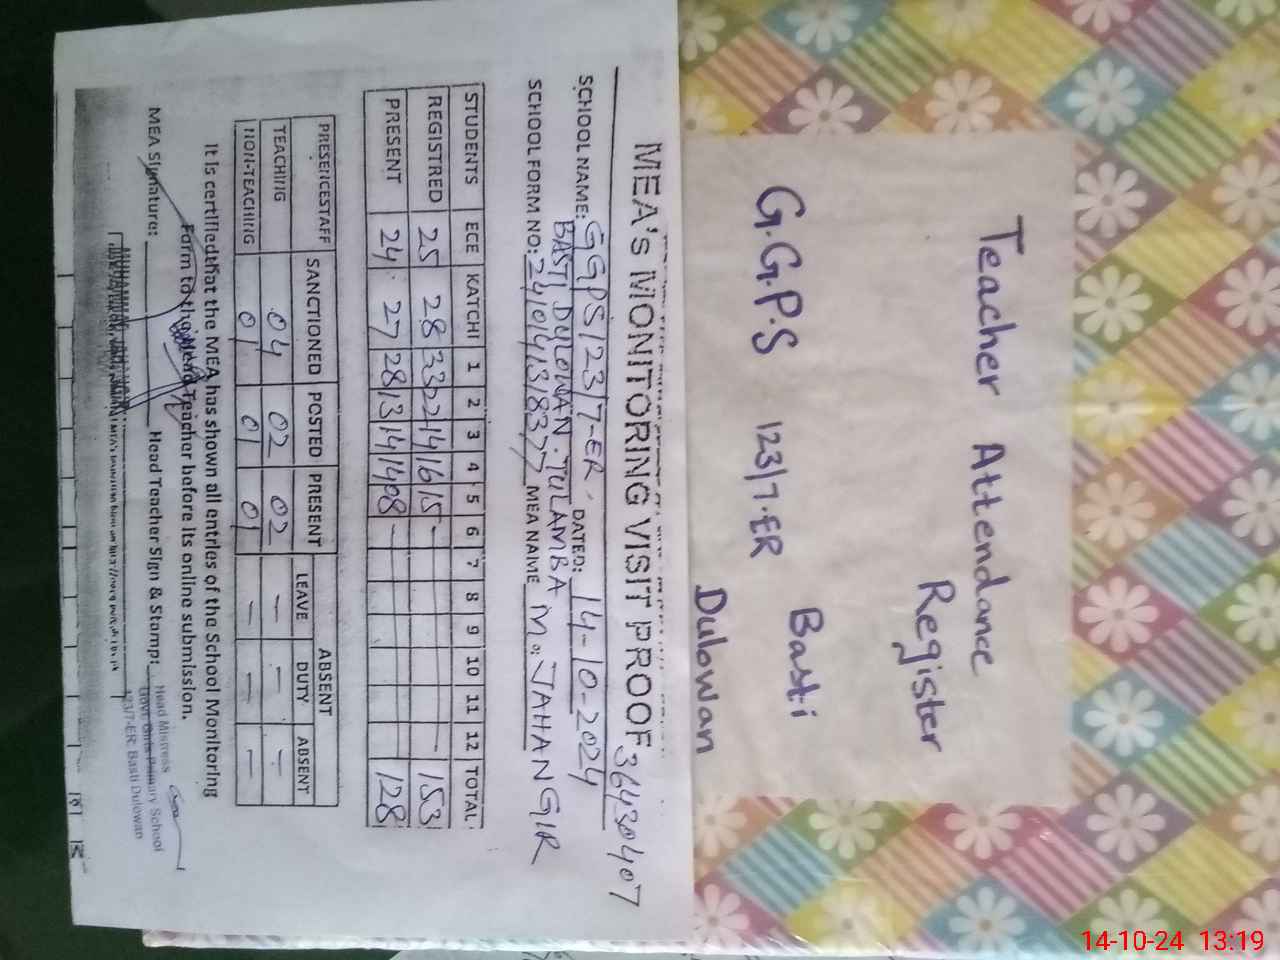 Teacher Attendance
Register
G.G.P.S 123/7.ER
Basti
Dulowan
MEA's MONITORING VISIT PROOF 36430407
SCHOOL NAME: GGPS 123/7-ER. DATED: 14-10-2024
BASTI DULOWAN. TULAMBA
SCHOOL FORM NO: MEA NAME M. JAHANGIR
STUDENTS ECE KATCHI 1 2 3 4 5 6 7 8 9 10 11 12 TOTAL
REGISTRED 25 28 33 22 14 16 15 - 153
PRESENT 24 27 28 13 14 14 08 - 128
PRESENCESTAFF SANCTIONED POSTED PRESENT ABSENT
LEAVE DUTY ABSENT
TEACHING 04 02 02 — — —
NON-TEACHING 01 01 01 — — —
It is certifiedthat the MEA has shown all entries of the School Monitoring
Form to the Head Teacher before its online submission.
MEA Signature: Head Teacher Sign & Stamp:
Head Mistress
Govt. Girls Primary School
123/7-ER. Basti Dulowan
14-10-24 13:19